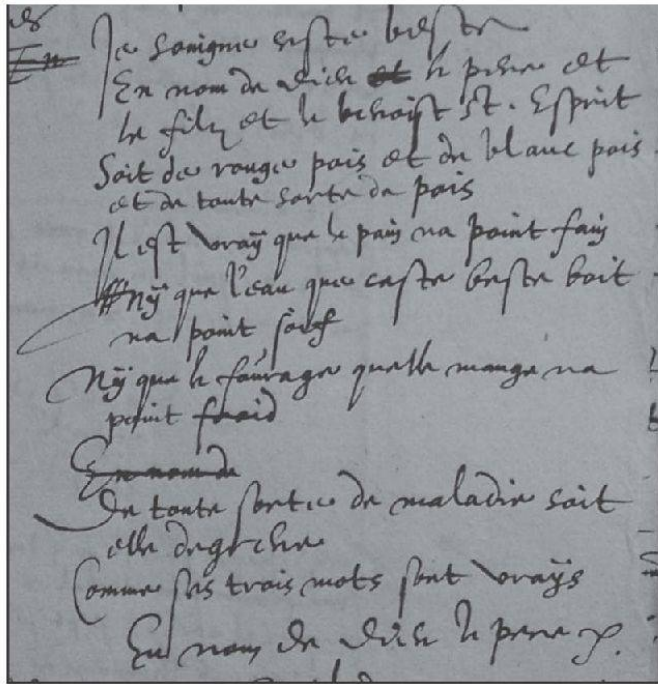 Je sonigne ceste beste
En nom de Dieu et le pere et
le filz et le benoist St. Esprit
Soit de rouge pois et de blanc pois
et de toute sorte de pois
Il est vraÿ que le pain na point fain
nÿ que l'eau que ceste beste boit
na point soif
Nÿ que le fourage quelle mange na
point froid
En nom de
De toute sorte de maladie soit
elle
Comme ses trois mots sont vraÿs
En nom de Dieu le pere